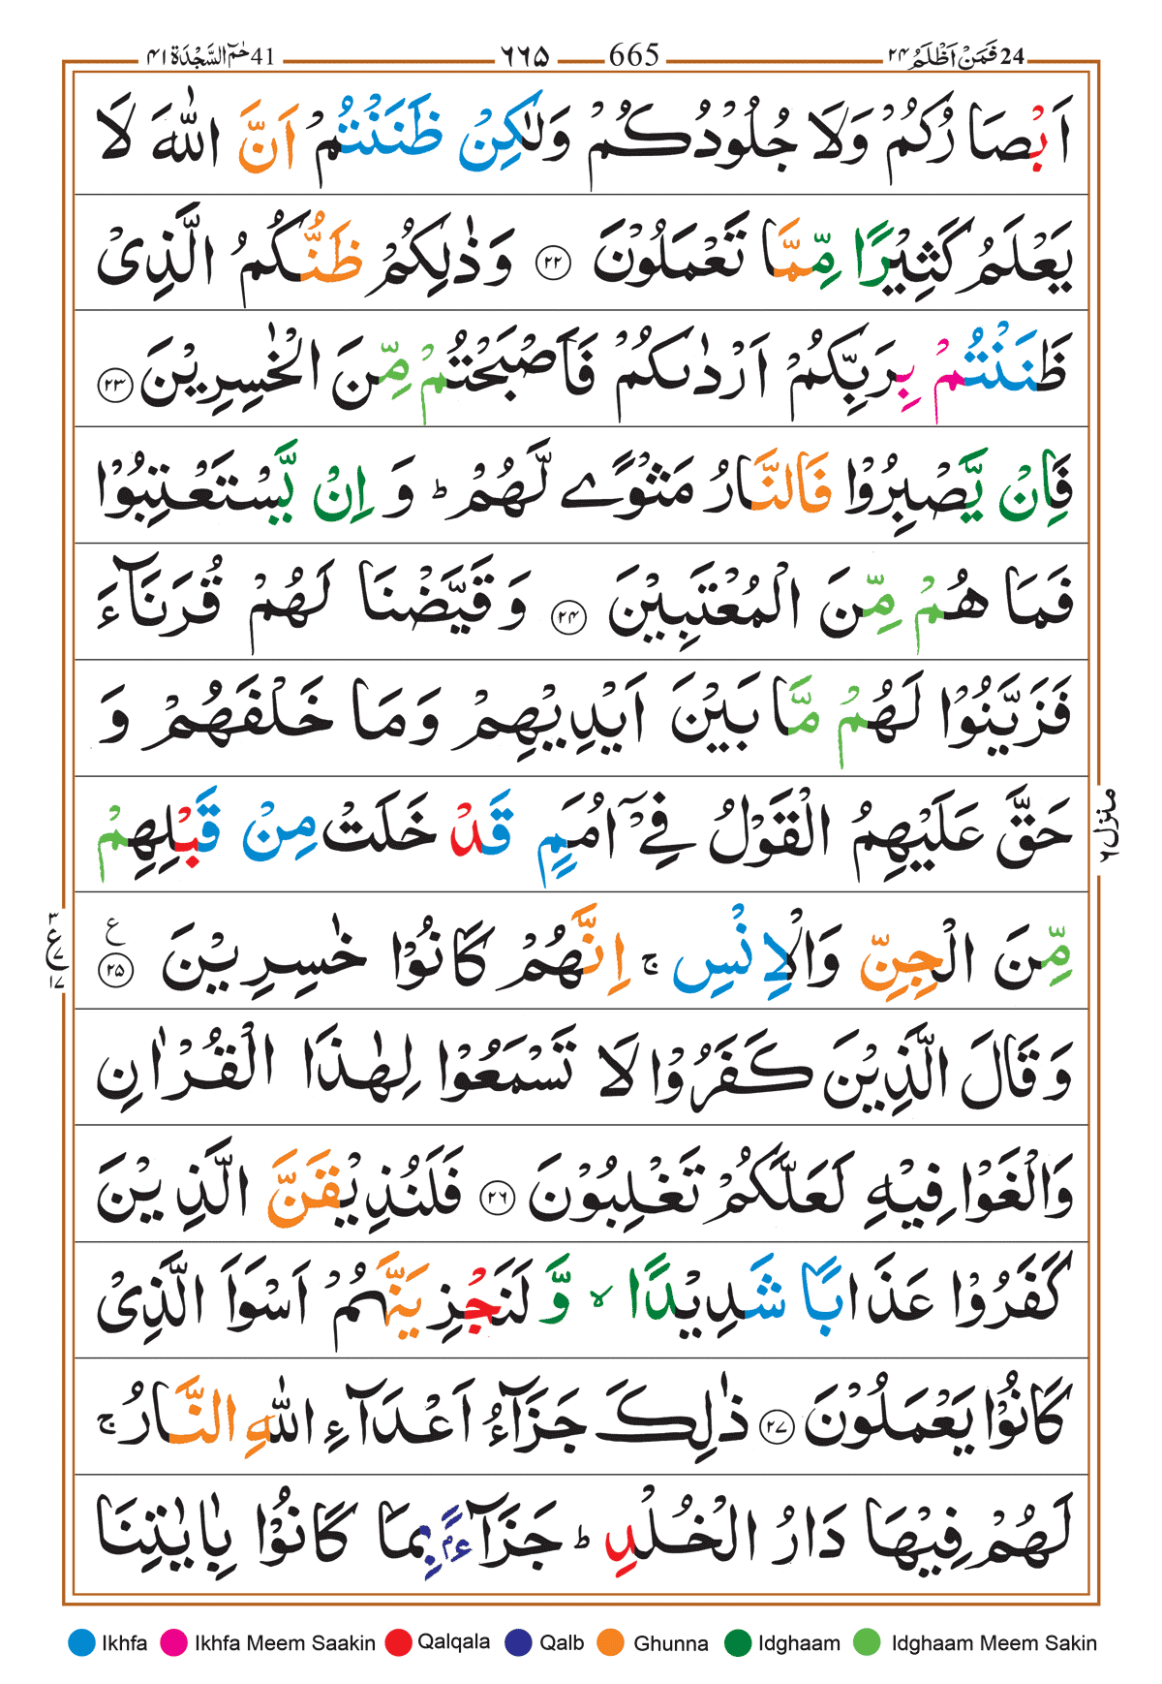 41 حٰمٓ السَّجْدَة ٤١ ٦٦٥ 665 24 فَمَنْ اَظْلَمُ ٢٤
اَبْصَارُكُمْ وَلَا جُلُوْدُكُمْ وَلٰكِنْ ظَنَنْتُمْ اَنَّ اللّٰهَ لَا
يَعْلَمُ كَثِيْرًا مِّمَّا تَعْمَلُوْنَ ﴿٢٢﴾ وَذٰلِكُمْ ظَنُّكُمُ الَّذِىْ
ظَنَنْتُمْ بِرَبِّكُمْ اَرْدٰىكُمْ فَاَصْبَحْتُمْ مِّنَ الْخٰسِرِيْنَ ﴿٢٣﴾
فَاِنْ يَّصْبِرُوْا فَالنَّارُ مَثْوًى لَّهُمْ ؕ وَ اِنْ يَّسْتَعْتِبُوْا
فَمَا هُمْ مِّنَ الْمُعْتَبِيْنَ ﴿٢٤﴾ وَقَيَّضْنَا لَهُمْ قُرَنَآءَ
فَزَيَّنُوْا لَهُمْ مَّا بَيْنَ اَيْدِيْهِمْ وَمَا خَلْفَهُمْ وَ
حَقَّ عَلَيْهِمُ الْقَوْلُ فِىْۤ اُمَمٍ قَدْ خَلَتْ مِنْ قَبْلِهِمْ
منزل ٦
مِّنَ الْجِنِّ وَالْاِنْسِ ۚ اِنَّهُمْ كَانُوْا خٰسِرِيْنَ ﴿٢٥﴾ ع
٣ ع ٧ ١٧
وَقَالَ الَّذِيْنَ كَفَرُوْا لَا تَسْمَعُوْا لِهٰذَا الْقُرْاٰنِ
وَالْغَوْا فِيْهِ لَعَلَّكُمْ تَغْلِبُوْنَ ﴿٢٦﴾ فَلَنُذِيْقَنَّ الَّذِيْنَ
كَفَرُوْا عَذَابًا شَدِيْدًا ۙ وَّ لَنَجْزِيَنَّهُمْ اَسْوَاَ الَّذِىْ
كَانُوْا يَعْمَلُوْنَ ﴿٢٧﴾ ذٰلِكَ جَزَآءُ اَعْدَآءِ اللّٰهِ النَّارُ ۚ
لَهُمْ فِيْهَا دَارُ الْخُلْدِ ؕ جَزَآءًۢ بِمَا كَانُوْا بِاٰيٰتِنَا
Ikhfa Ikhfa Meem Saakin Qalqala Qalb Ghunna Idghaam Idghaam Meem Sakin